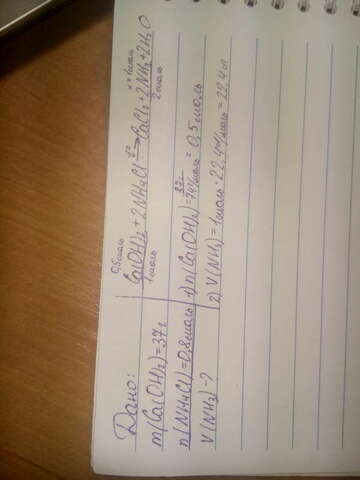 Дано:
m(Ca(OH)₂)=37г
n(NH4Cl)=0,8моль
V(NH₃)-?
0,5моль x=1моль
Ca(OH)₂+2NH4Cl →t° CaCl₂+2NH₃+2H₂O
1моль 2моль
1) n(Ca(OH)₂)=37г/74г/моль=0,5моль
2) V(NH₃)=1моль·22,4л/моль=22,4л